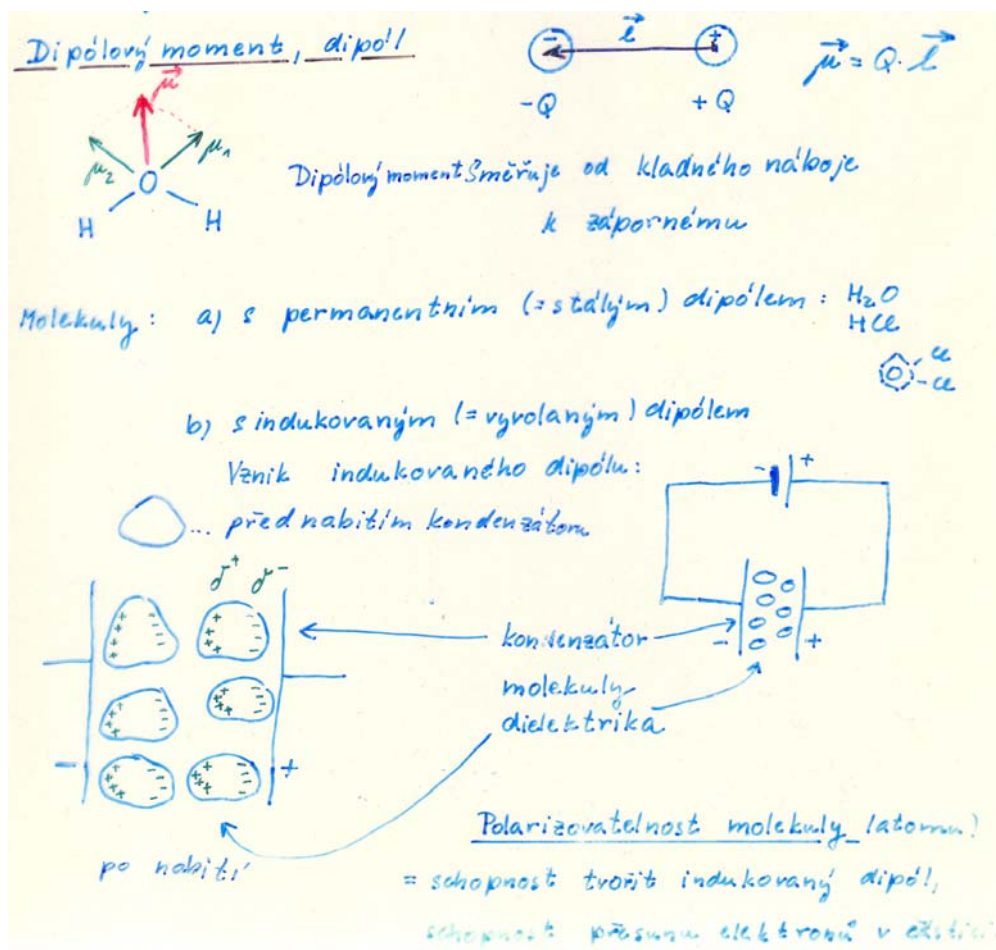 Dipólový moment, dipól
l
- +
-Q +Q
μ = Q · l
μ
μ2 μ1
O
H H
Dipólový moment Směřuje od kladného náboje
k zápornému
Molekuly: a) s permanentním (= stálým) dipólem : H2O
HCl
Cl
Cl
b) s indukovaným (= vyvolaným) dipólem
Vznik indukovaného dipólu:
... před nabitím kondenzátoru
- +
δ+ δ-
kondenzátor
- +
molekuly
dielektrika
- +
po nabití
Polarizovatelnost molekuly (atomu)
= schopnost tvořit indukovaný dipól,
schopnost přesunu elektronů v částici